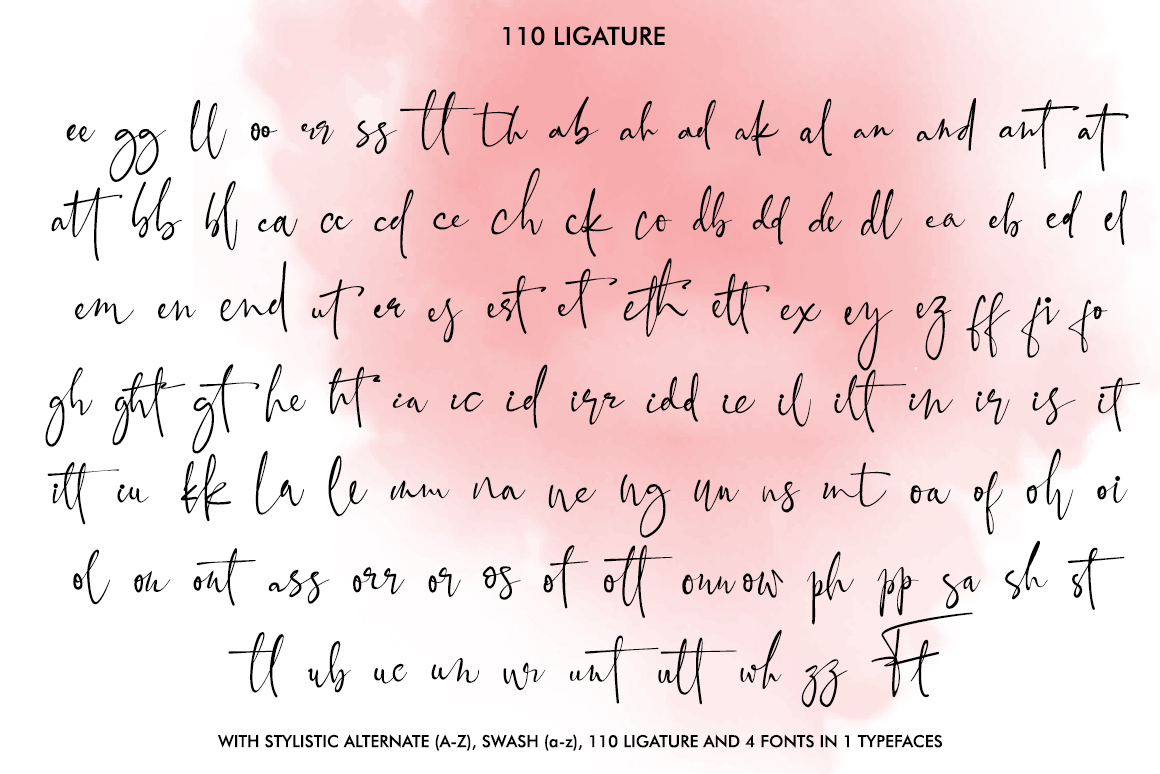 110 LIGATURE
ee gg ll oo rr ss tt th ab ah ad ak al an and ant at
att bb bl ca cc cd ce ch ck co db dd de dl ea eb ed el
em en end ut er es est et eth ett ex ey ez ff fi fo
gh ght gt he ht ia ic id irr idd ie il ilt in ir is it
itt iu kk la le mm na ne ng nn ns nt oa of oh oi
ol on ont ass orr or os ot ott ow ph pp sa sh st
tl ub uc un ur unt utt wh zz Ft
WITH STYLISTIC ALTERNATE (A-Z), SWASH (a-z), 110 LIGATURE AND 4 FONTS IN 1 TYPEFACES